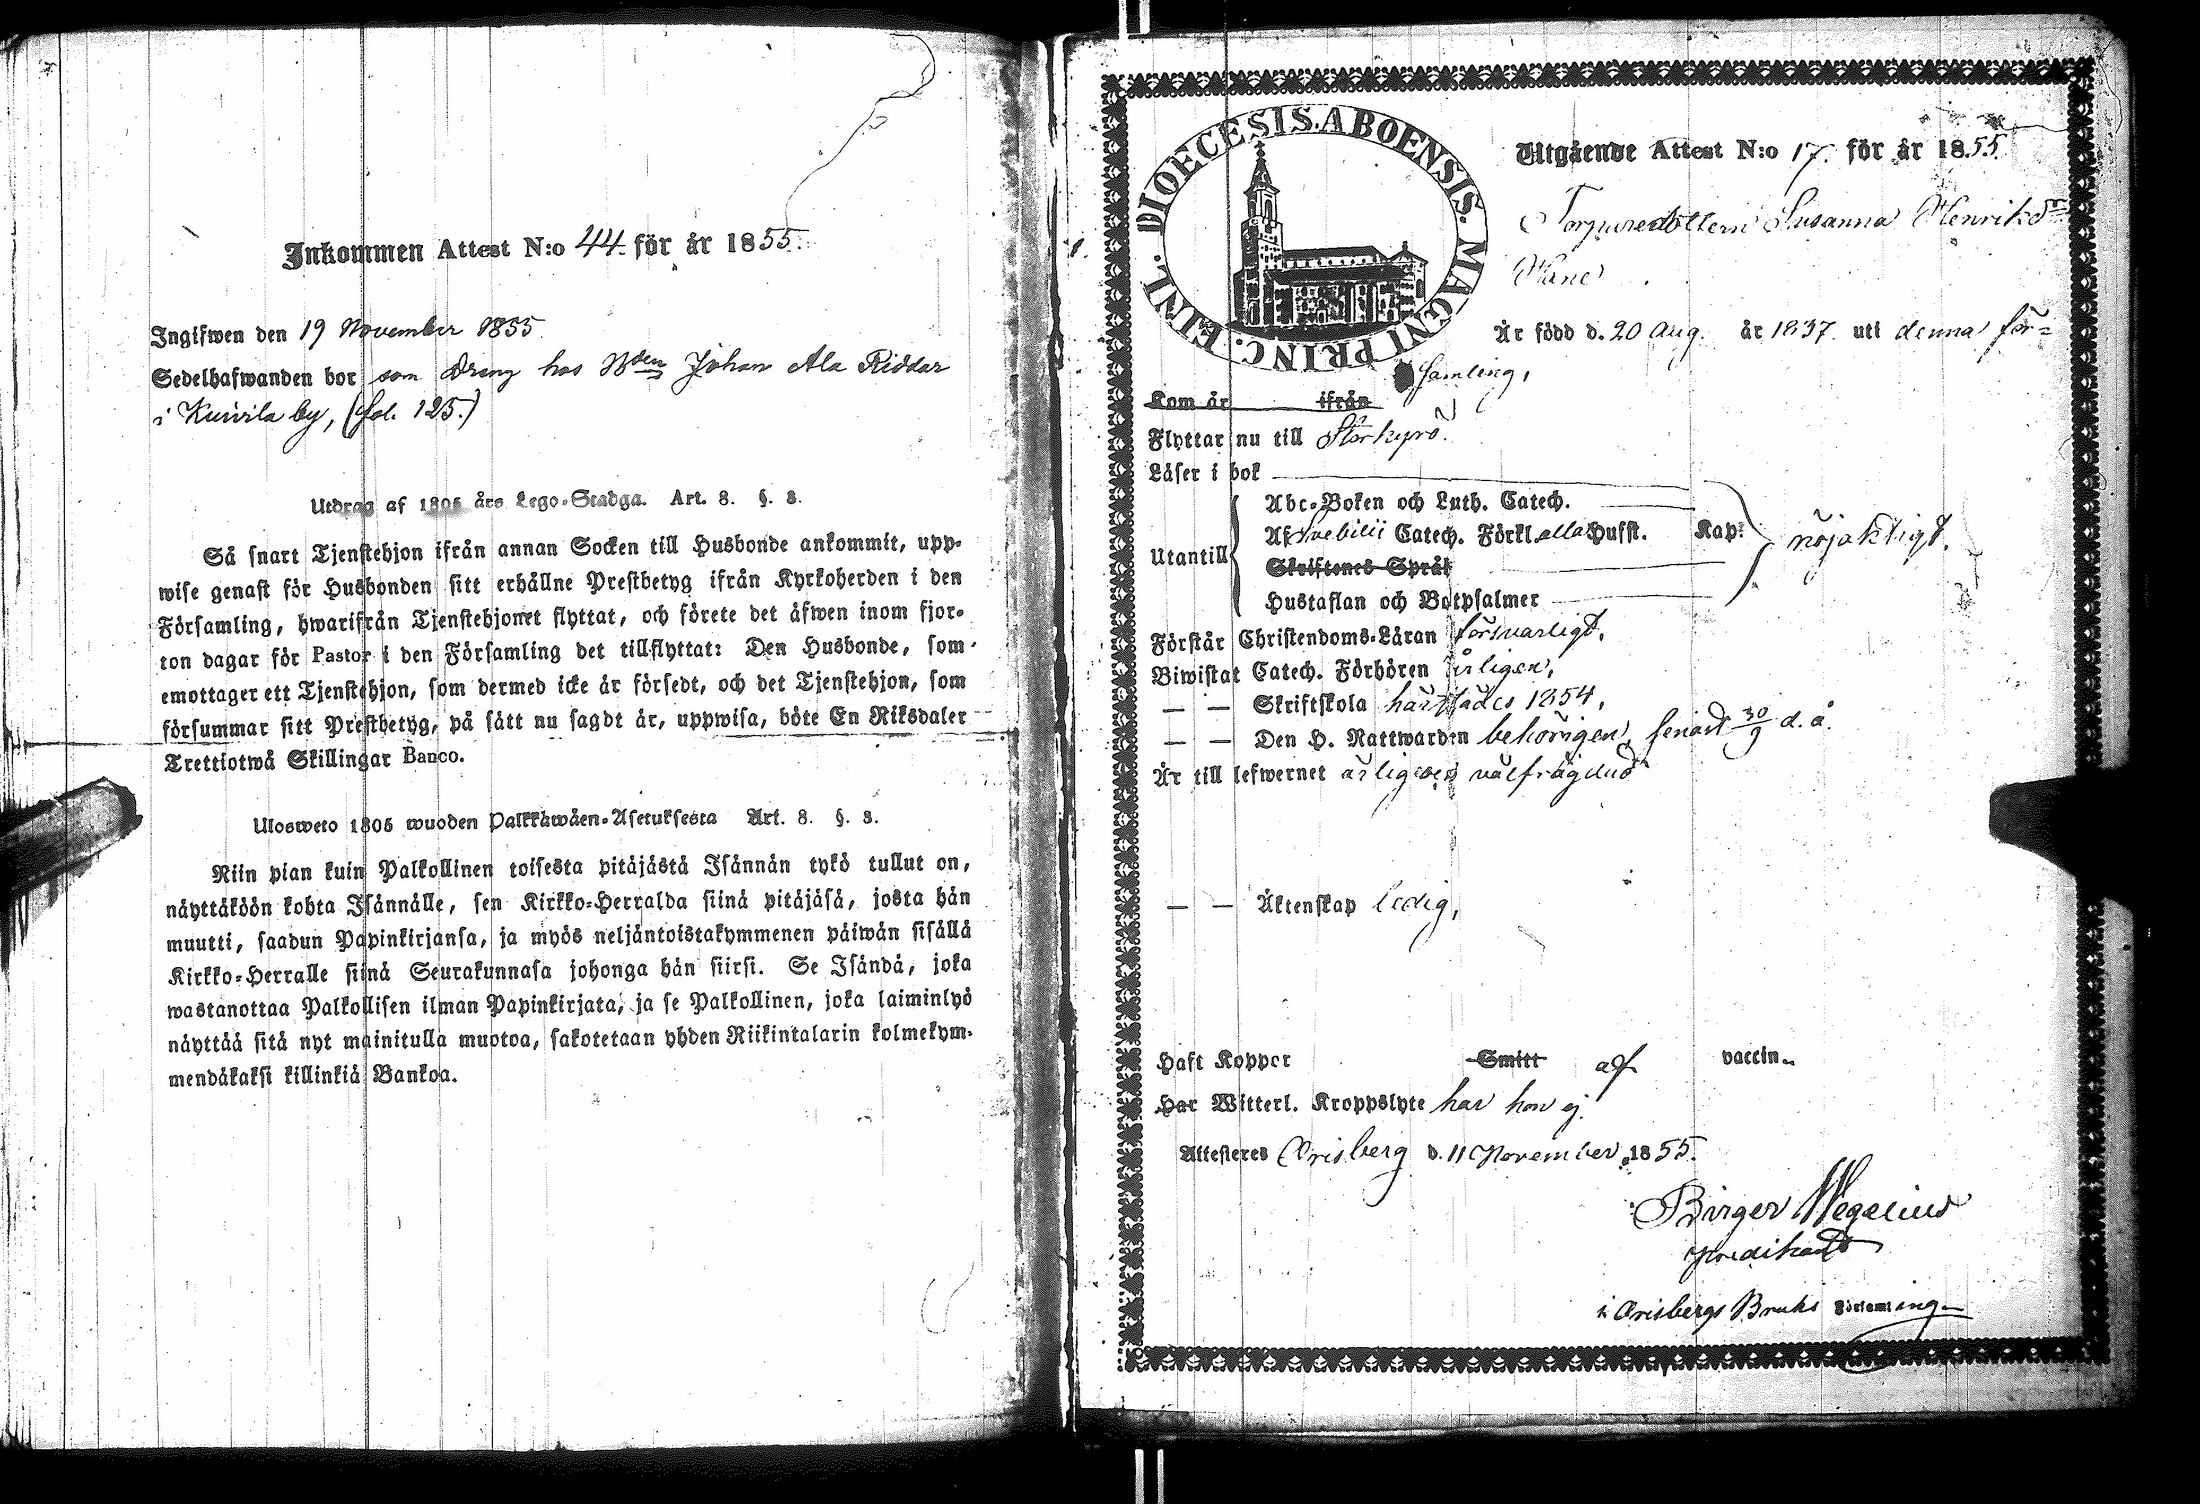 Inkommen Attest N:o 44. för år 1855.
Ingifwen den 19 November 1855.
Sedelhafwanden bor som dräng hos Bden Johan Ala Riddar
i Kuivila by, (fol. 125.)
Utdrag af 1805 års Lego-Stadga. Art. 8. §. 3.
Så snart Tjenstehjon ifrån annan Socken till Husbonde ankommit, upp-
wise genast för Husbonden sitt erhållne Prestbetyg ifrån Kyrkoherden i den
Församling, hwarifrån Tjenstehjonet flyttat, och förete det äfwen inom fjor-
ton dagar för Pastor i den Församling det tillflyttat: Den Husbonde, som
emottager ett Tjenstehjon, som dermed icke är försedt, och det Tjenstehjon, som
försummar sitt Prestbetyg, på sätt nu sagdt är, uppwisa, böte En Riksdaler
Trettiotwå Skillingar Banco.
Ulosweto 1805 wuoden Palkkawäen-Asetuksesta Art. 8. §. 3.
Niin pian kuin Palkollinen toisesta pitäjästä Isännän tykö tullut on,
näyttäköön kohta Isännälle, sen Kirkko-Herralda siinä pitäjäsä, josta hän
muutti, saadun Papinkirjansa, ja myös neljäntoistakymmenen päiwän sisällä
Kirkko-Herralle siinä Seurakunnasa johonga hän siirsi. Se Isändä, joka
wastanottaa Palkollisen ilman Papinkirjata, ja se Palkollinen, joka laiminlyö
näyttää sitä nyt mainitulla muotoa, sakotetaan yhden Riikintalarin kolmekym-
mendäkaksi killinkiä Bankoa.
DIOECESIS. ABOENSIS. MAGNI PRINC. FINL.
Utgående Attest N:o 17. för år 1855.
Torparedottern Susanna Henriksdr
Hane
Är född d. 20 Aug. år 1837 uti denna för-
samling,
Kom år ifrån
Flyttar nu till Storkyro.
Läser i bok
Abc-Boken och Luth. Catech.
Utantill Af Svebilii Catech. Förkl. alla Hufst. Kap. nöjaktigt.
Skriftenes Språk
Hustaflan och Botpsalmer
Förstår Christendoms-Läran försvarligt,
Biwistat Catech. Förhören årligen,
— — Skriftskola härstädes 1854,
— — Den H. Nattwarden behörigen, senast 30/9 d. å.
Är till lefwernet ärlig och välfrägdad
— — Äktenskap ledig,
Haft Kopper Smitt af vaccin.
Har Witterl. Kroppslyte har hon ej.
Attesteres Orisberg d. 11 November 1855.
Birger Wegelius
predikant
i Orisbergs Bruks Församling